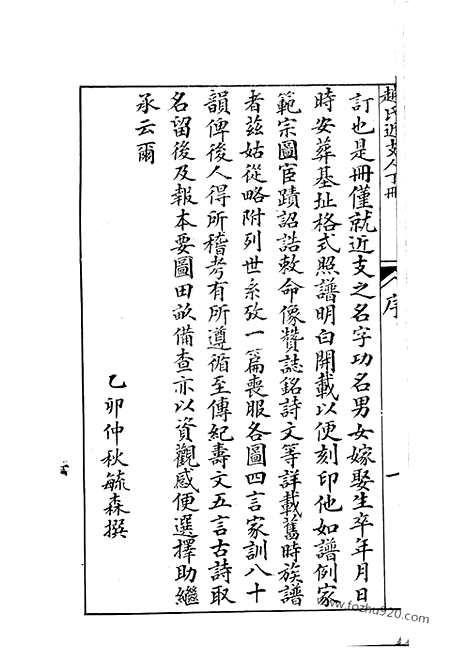 趙氏近支人丁冊
序
一
訂也是冊僅就近支之名字功名男女嫁娶生卒年月日
時安葬基址格式照譜明白開載以便刻印他如譜例家
範宗圖宦蹟詔誥敕命像贊誌銘詩文等詳載舊時族譜
者茲姑從略附列世系攷一篇喪服各圖四言家訓八十
韻俾後人得所稽考有所遵循至傳紀壽文五言古詩取
名留後及報本要圖田畝備查亦以資觀感便選擇助繼
承云爾
乙卯仲秋毓森撰
www.fozhu920.com